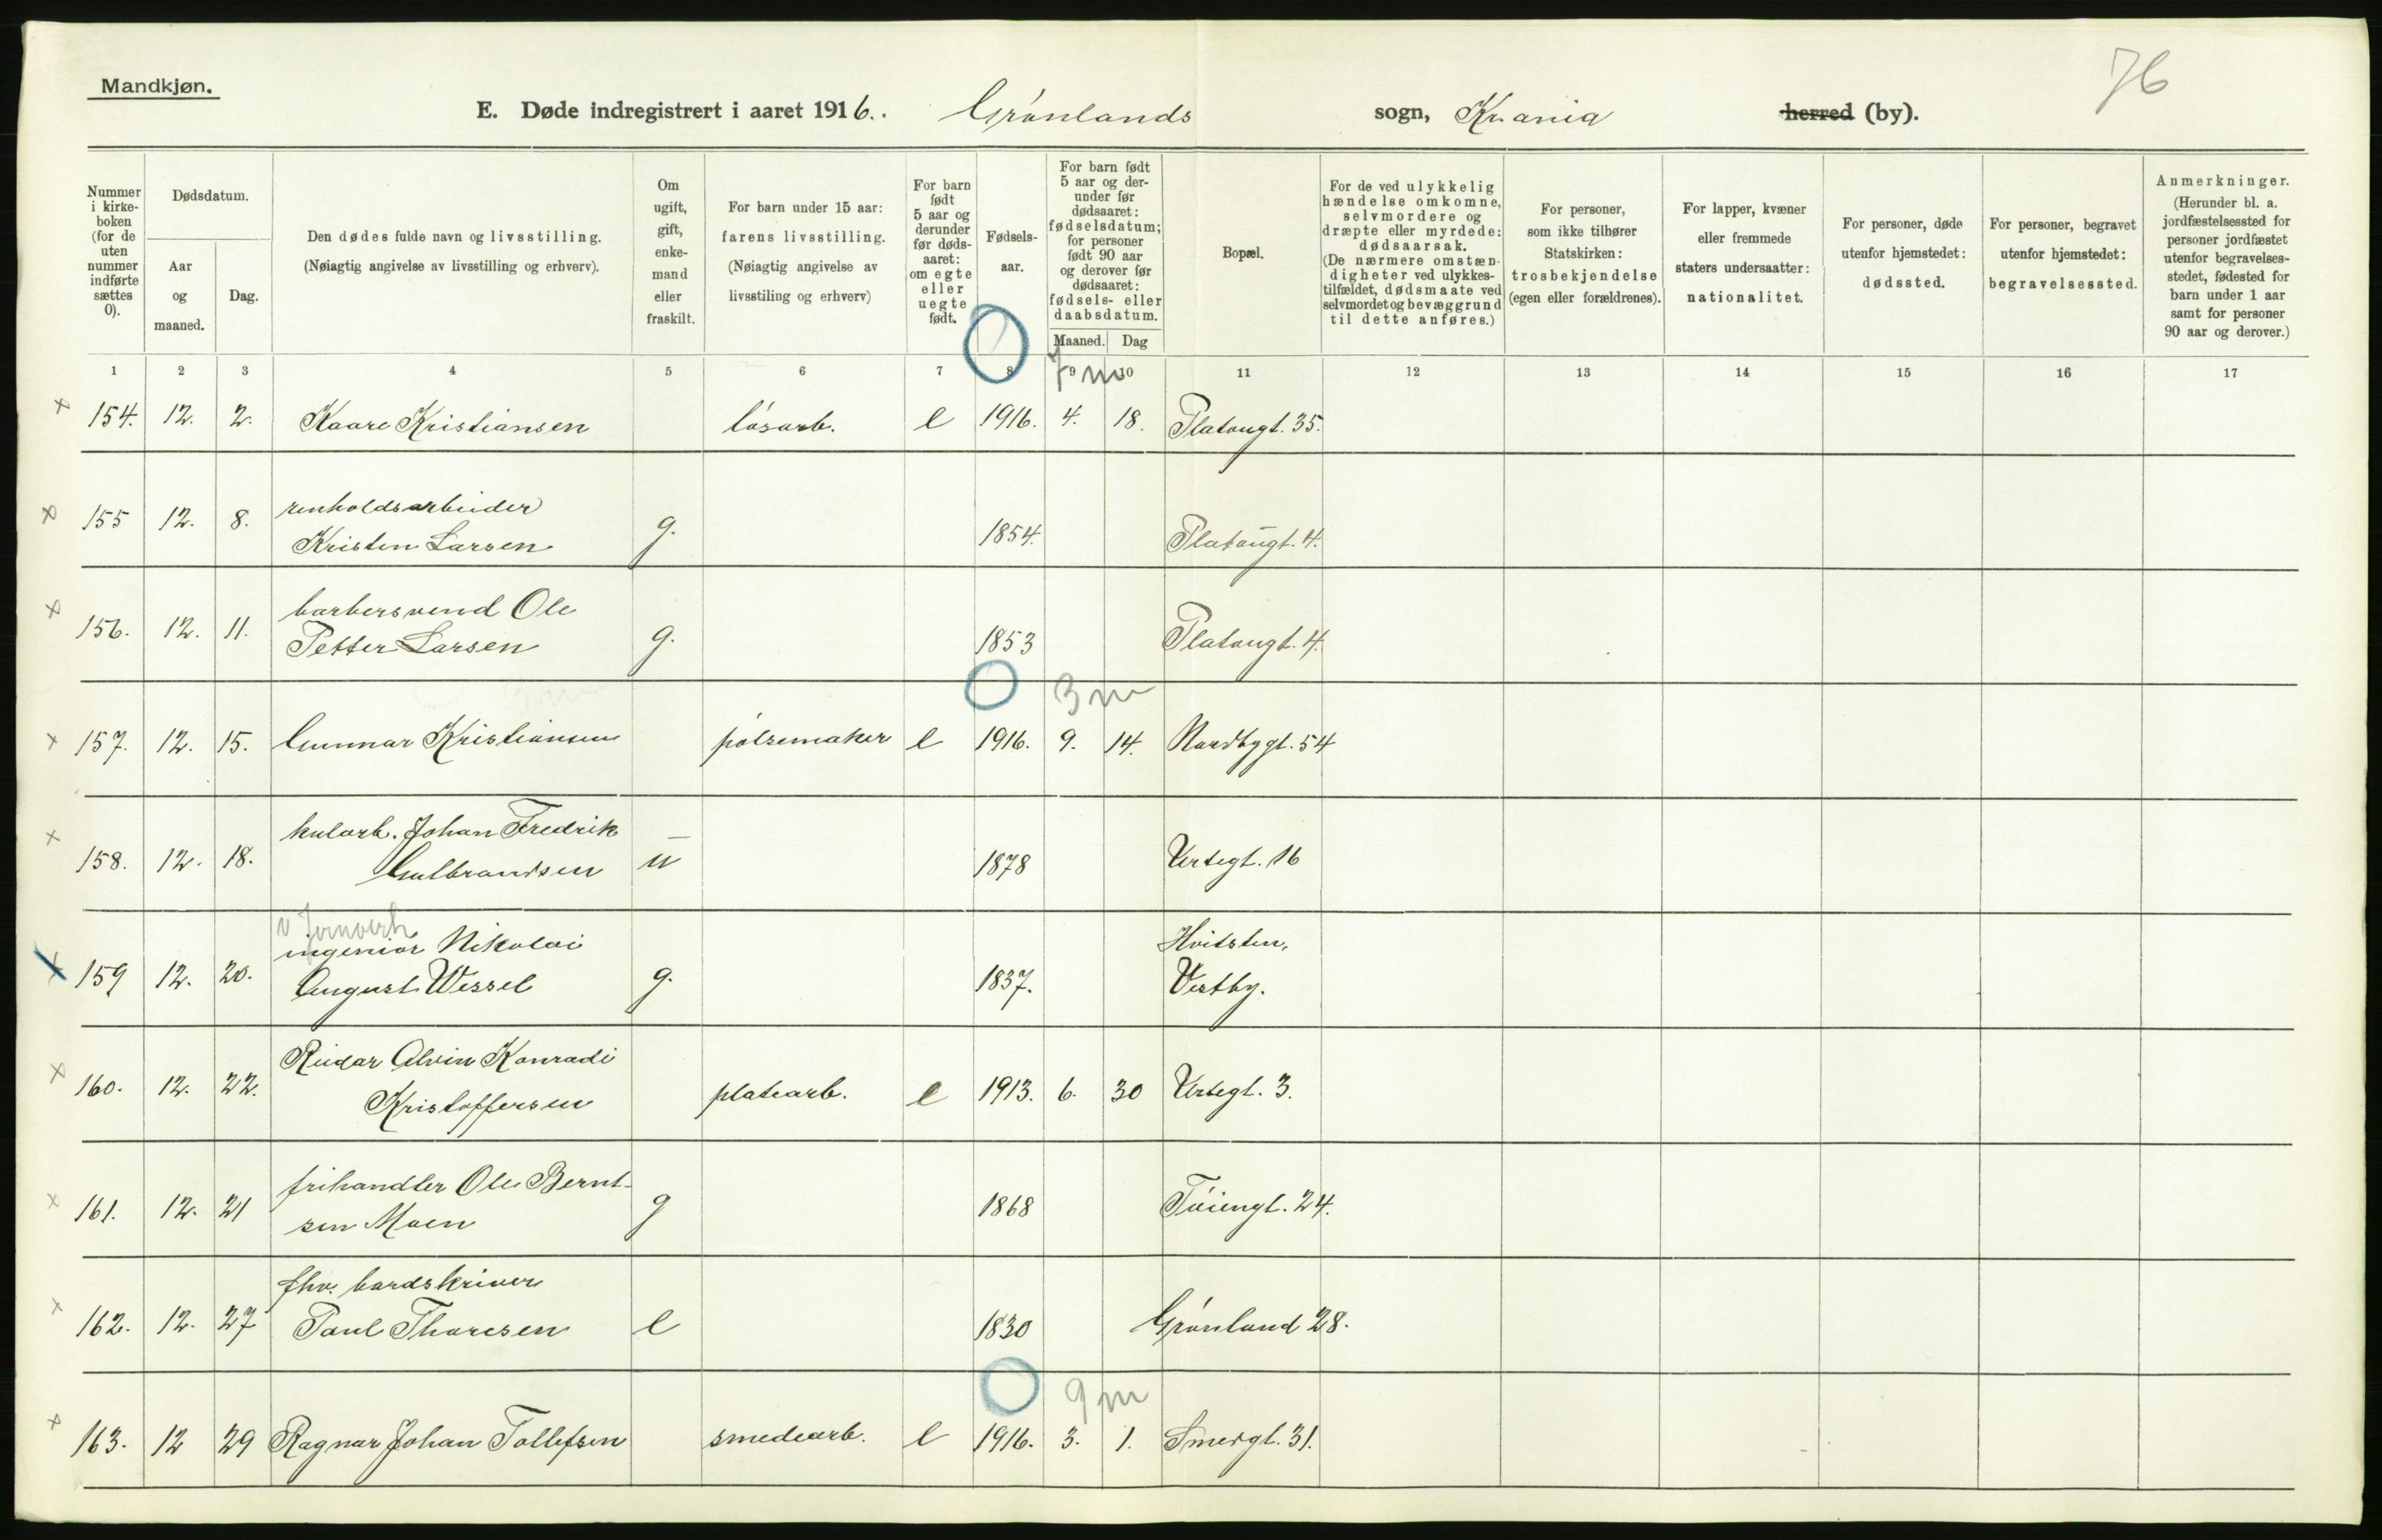 Mandkjøn.
76
E. Døde indregistrert i aaret 1916. Grønlands sogn, Kr.ania herred (by).
Nummer i kirkeboken (for de uten nummer indførte sættes 0).
Dødsdatum.
Aar og maaned.
Dag.
Den dødes fulde navn og livsstilling.
(Nøiagtig angivelse av livsstilling og erhverv).
Om ugift, gift, enkemand eller fraskilt.
For barn under 15 aar: farens livsstilling.
(Nøiagtig angivelse av livsstiling og erhverv)
For barn født 5 aar og derunder før dødsaaret: om egte eller uegte født.
Fødselsaar.
For barn født 5 aar og derunder før dødsaaret: fødselsdatum; for personer født 90 aar og derover før dødsaaret: fødsels- eller daabsdatum.
Maaned. Dag
Bopæl.
For de ved ulykkelig hændelse omkomne, selvmordere og dræpte eller myrdede: dødsaarsak.
(De nærmere omstændigheter ved ulykkestilfældet, dødsmaate ved selvmordet og bevæggrund til dette anføres.)
For personer, som ikke tilhører Statskirken: trosbekjendelse (egen eller forældrenes).
For lapper, kvæner eller fremmede staters undersaatter: nationalitet.
For personer, døde utenfor hjemstedet: dødssted.
For personer, begravet utenfor hjemstedet: begravelsessted.
Anmerkninger.
(Herunder bl. a. jordfæstelsessted for personer jordfæstet utenfor begravelsesstedet, fødested for barn under 1 aar samt for personer 90 aar og derover.)
1 2 3 4 5 6 7 8 9 10 11 12 13 14 15 16 17
7 m
154. 12. 2. Kaare Kristiansen løsarb. e 1916. 4. 18. Platougt. 35.
renholdsarbeider
155 12. 8. Kristen Larsen g. 1854. Platougt. 4.
barbersvend Ole
156. 12. 11. Petter Larsen g. 1853 Platougt. 4.
3 m
157. 12. 15. Gunnar Kristiansen pølsemaker e 1916. 9. 14. Nordbygt. 54
kularb. Johan Fredrik
158. 12. 18. Gulbrandsen u 1878 Urtegt. 16
v Jernverk
ingeniør Nikolai Hvitsten,
159 12. 20. August Wessel g. 1837. Vestby.
Reidar Alvin Konradi
160. 12. 22. Kristoffersen platearb. e 1913. 6. 30 Urtegt. 3.
frihandler Ole Bernt-
161. 12. 21 sen Moen g 1868 Tøiengt. 24.
fhv. bordskriver
162. 12. 27 Paul Thoresen e 1830 Grønland 28.
9 m
163. 12 29 Ragnar Johan Tollefsen smedearb. e 1916. 3. 1. Smedgt. 31.